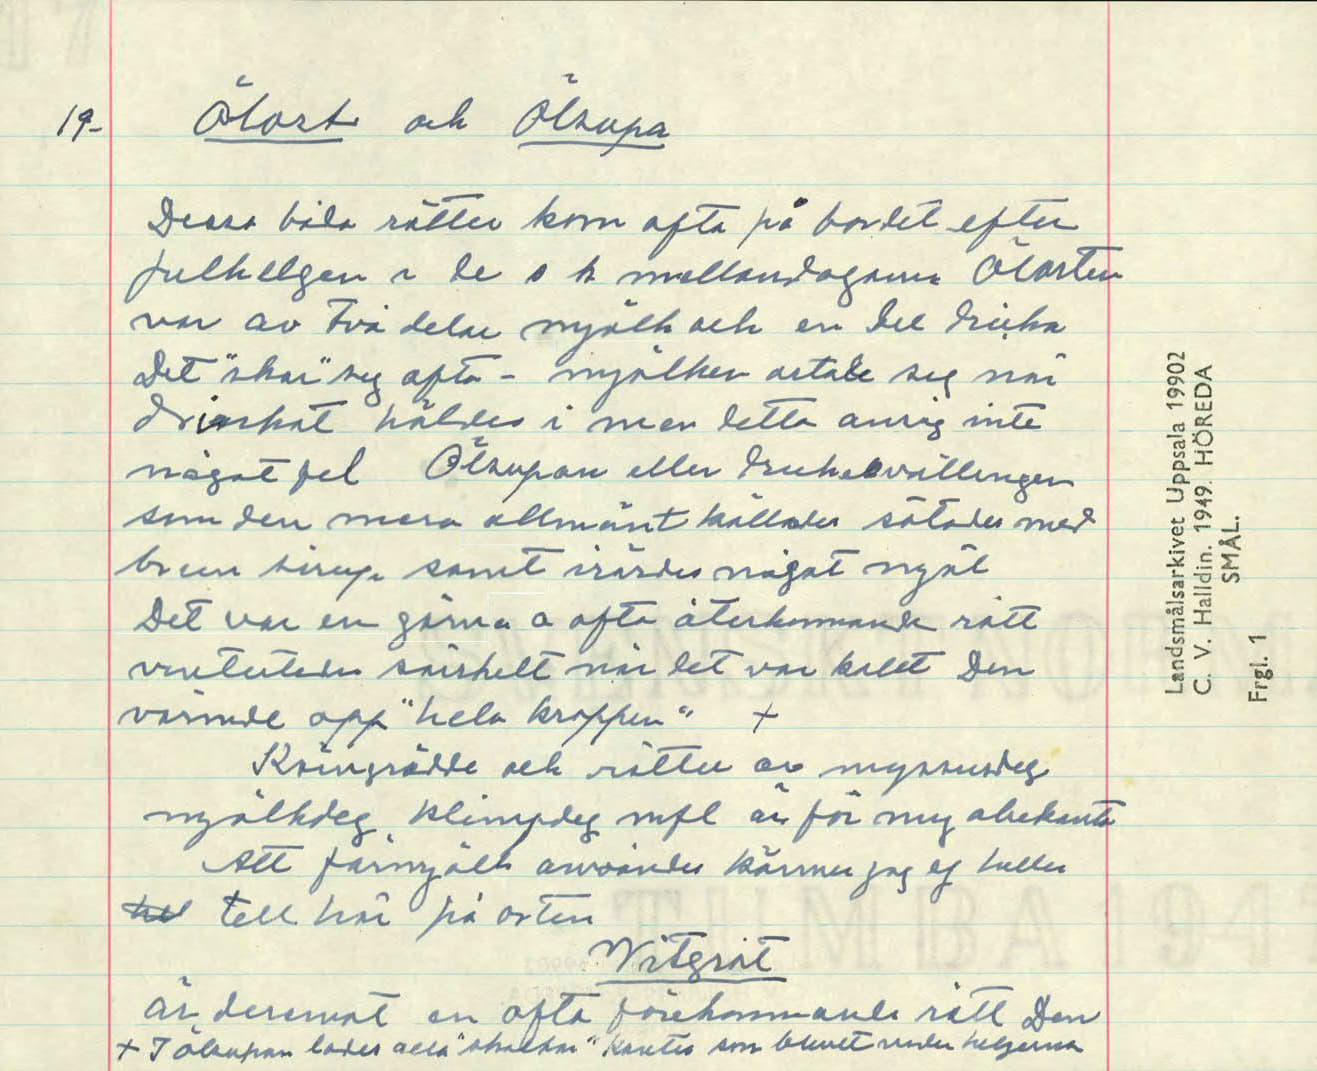 19-
Ölost och Ölsupa
Dessa båda rätter kom ofta på bordet efter
julhelgen i de s k mellandagarna Ölosten
var av två delar mjölk och en del dricka
Det "skar" seg ofta - mjölken ostade seg när
drickat häldes i men detta ansåg inte
något fel Ölsupan eller drickavällingen
som den mera allmänt kallades sötades med
brun sirup samt irördes något mjöl
Det var en gärna o ofta återkommande rätt
vintertiden särskelt när det var kallt Den
värmde opp "hela kroppen" +
Kringrädde och rätter av myssusdeg
mjölkdeg klimpdeg mfl är för mig obekanta
Att fårmjölk användes känner jag ej heller
till här på orten
Witgröt
är deremot en ofta förekommande rätt Den
+ I ölsupan lades även "skalkar" kanter som blivet under helgerna
Landsmålsarkivet Uppsala 19902
C. V. Halldin. 1949. HÖREDA
SMÅL.
Frgl. 1
TUMBA 194